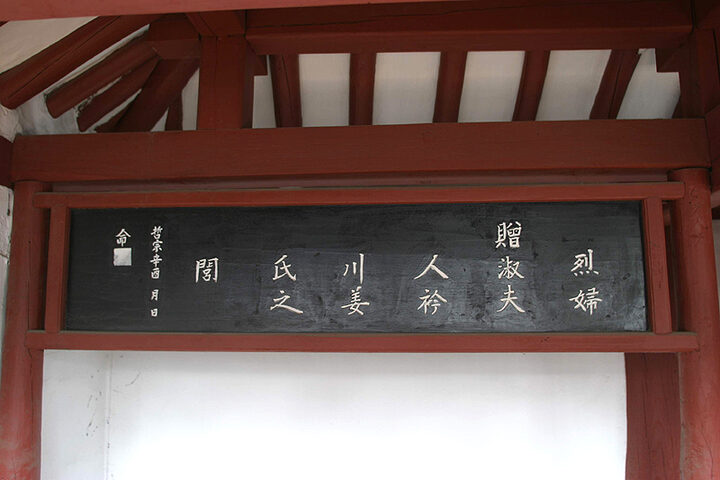 烈婦
贈淑夫
人衿
川姜
氏之
閭
哲宗辛酉 月 日
命